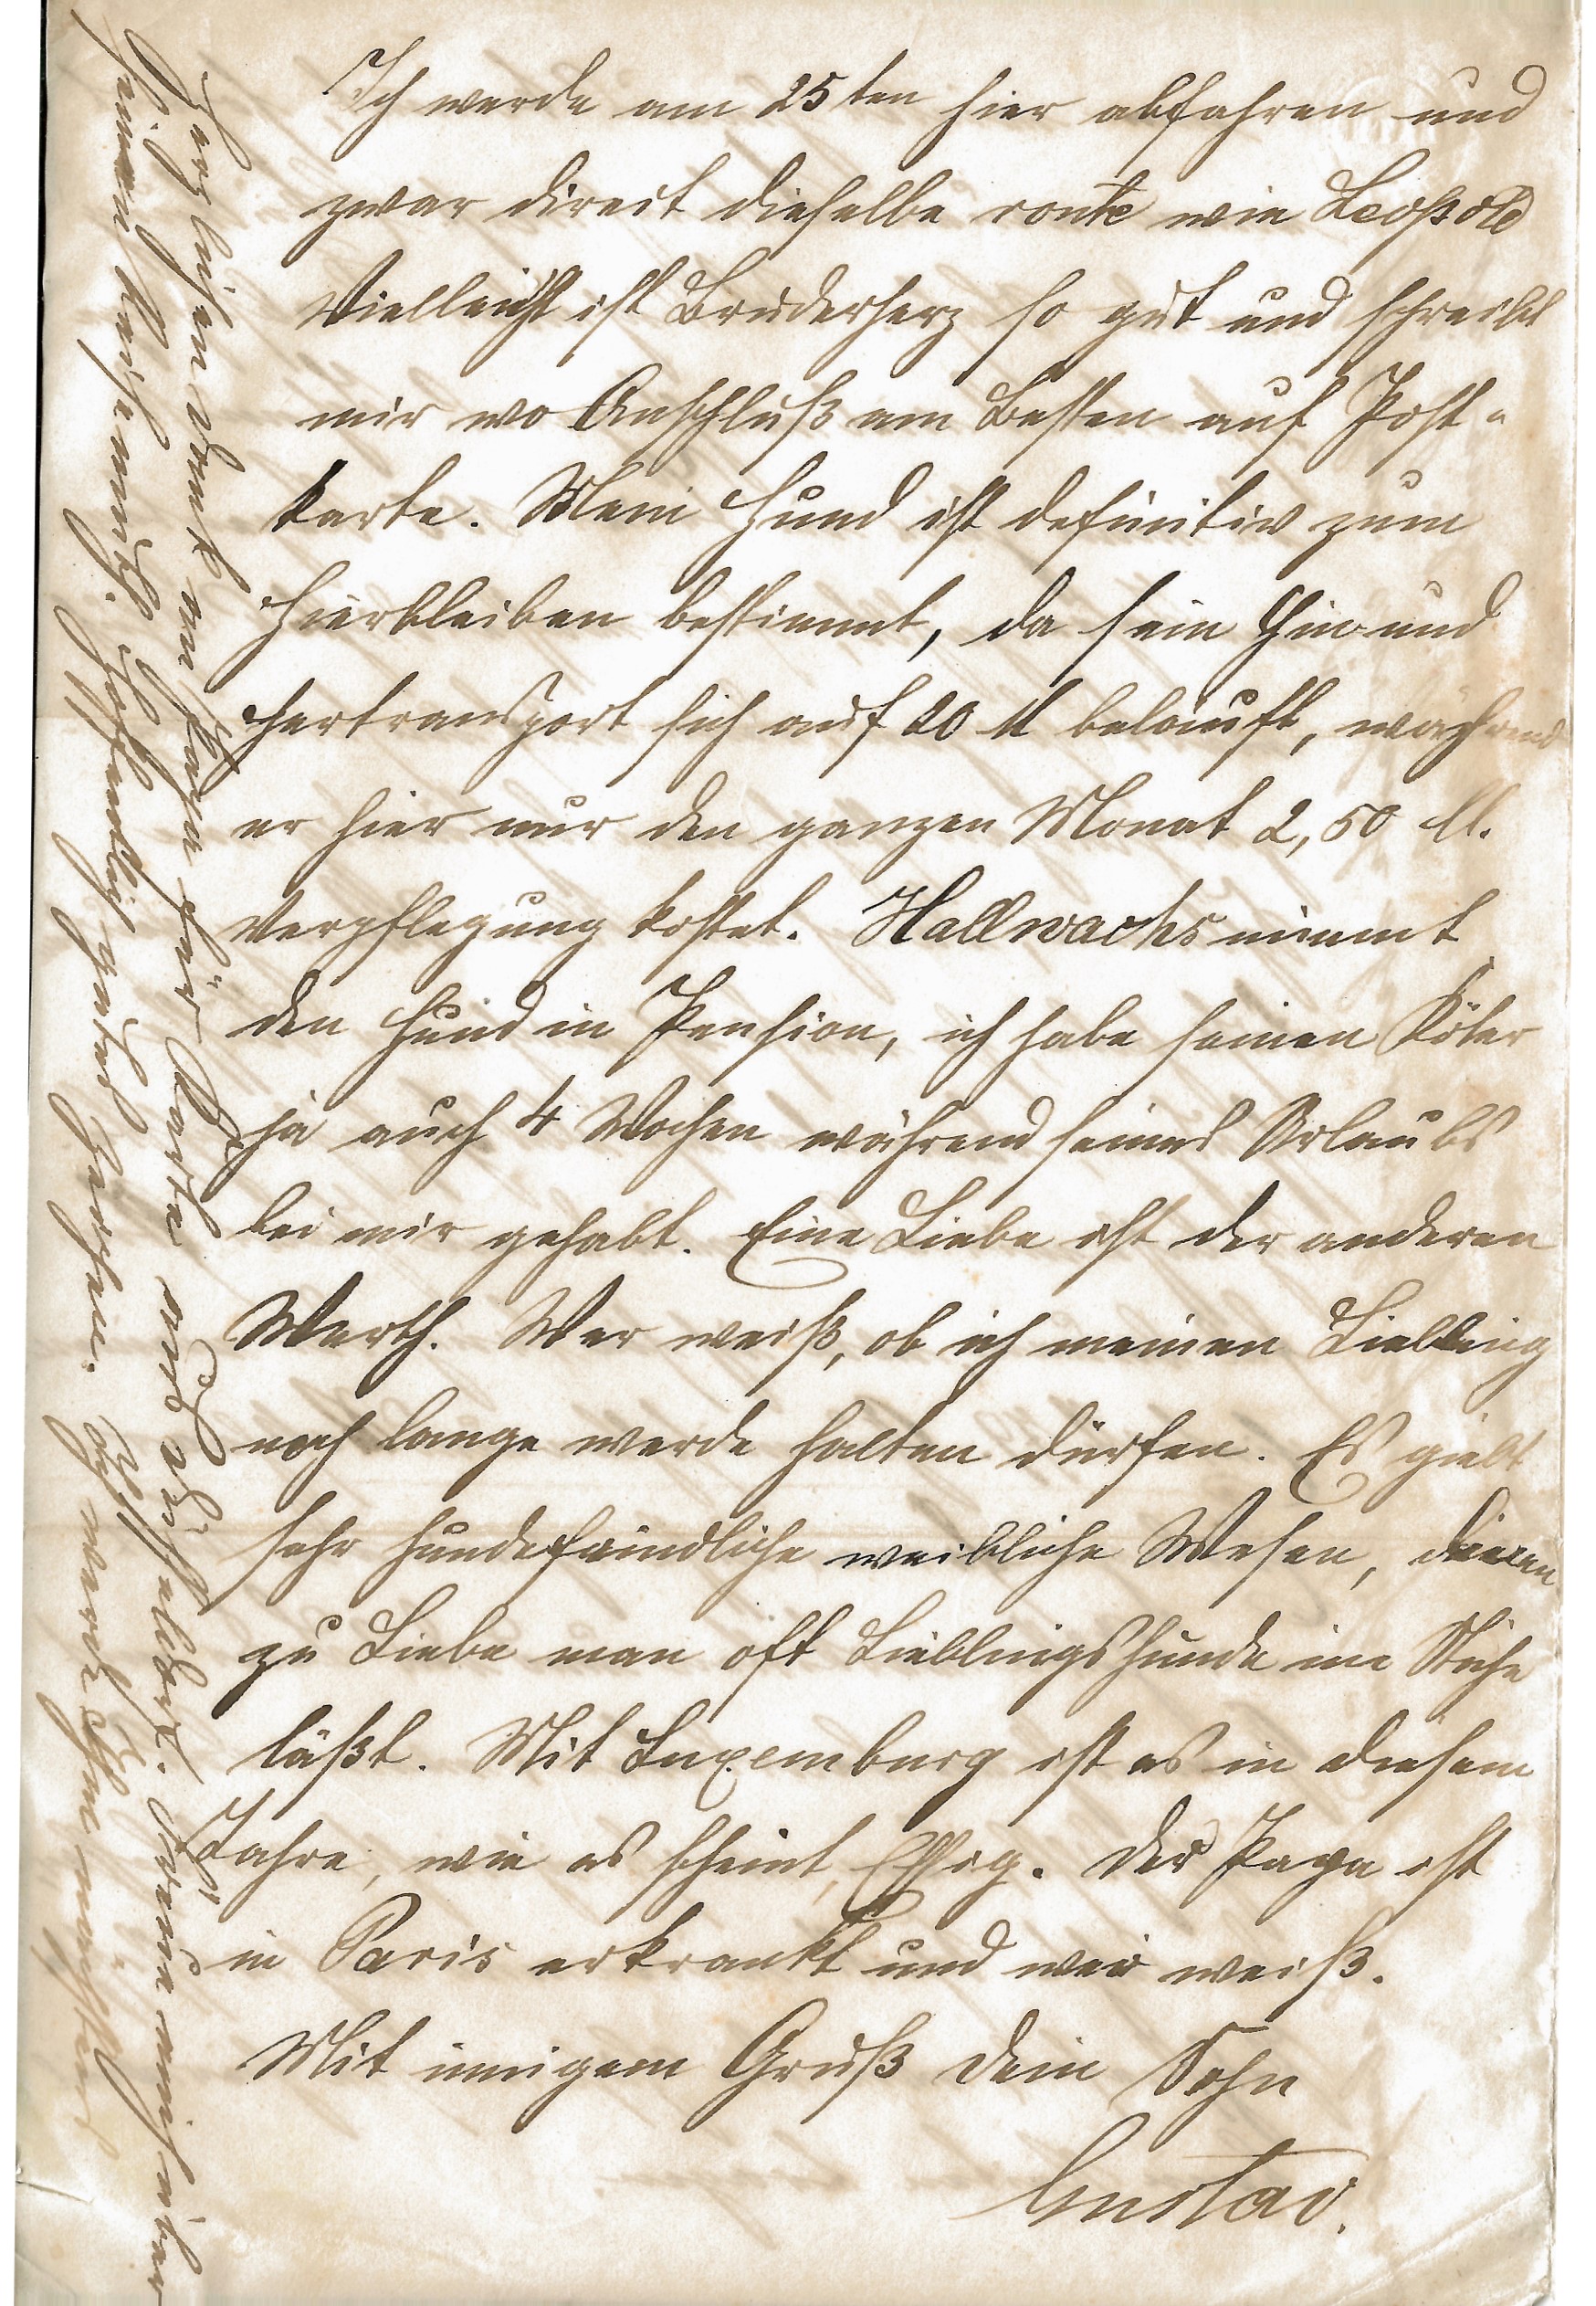 Ich werde am 25ten hier abfahren und
zwar direct dieselbe route wie Leopold
Vielleicht ist Bruderherz so gut und schreibt
mir wo Anschluß am Besten auf Post-
karte. Mein Hund ist definitiv zum
Hierbleiben bestimmt, da sein Hin und
Hertransport sich auf 20 M beläuft, während
er hier nur den ganzen Monat 2,50 M.
Verpflegung kostet. Hallwachs nimmt
den Hund in Pension, ich habe seinen Köter
ja auch 4 Wochen während seines Urlaubs
bei mir gehabt. Eine Liebe ist der anderen
Werth. Wer weiß, ob ich meinen Liebling
noch lange werde halten dürfen. Es giebt
sehr hundefeindliche weibliche Wesen, denen
zu Liebe man oft Lieblingshunde im Stiche
läßt. Mit Luxemburg ist es in diesem
Jahre, wie es scheint, Essig. Der Papa ist
in Paris erkrankt und wer weiß.
Mit innigem Gruß Dein Sohn
Gustav.
Herzlichen Dank an Papa für Karte und
seinen Hoffentlich gutes
Ich werde ihm